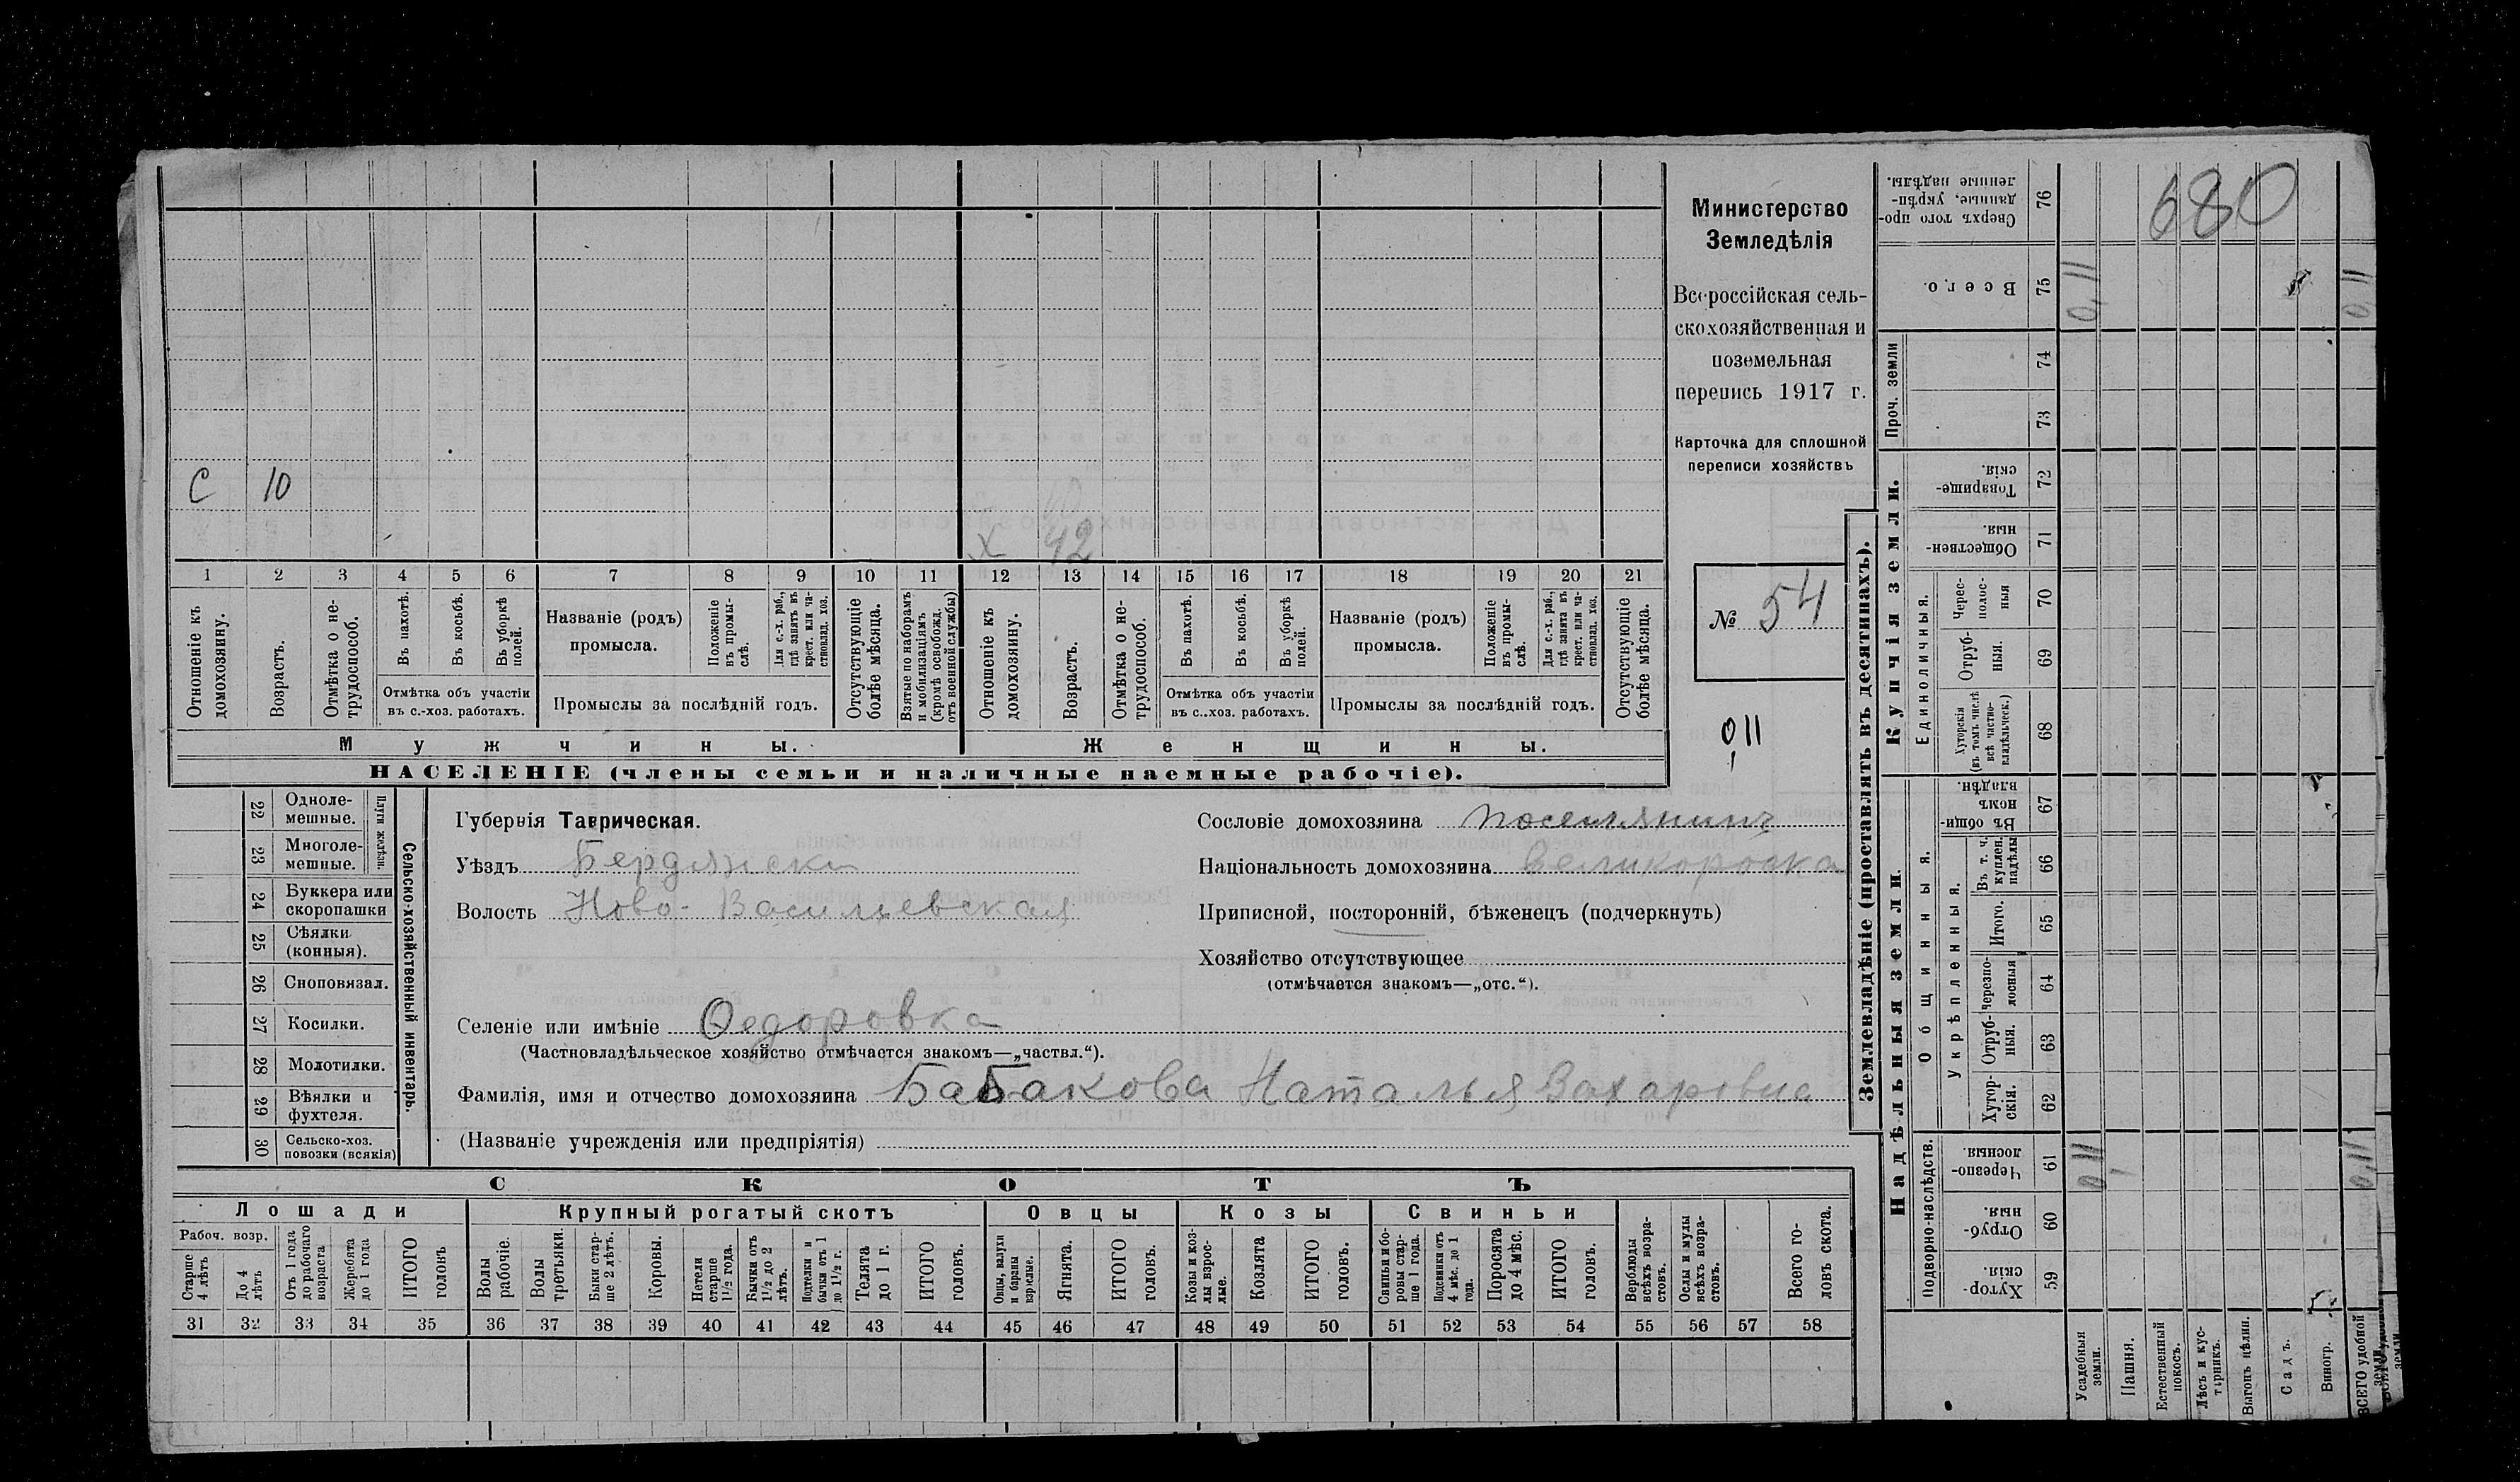 Министерство
Земледѣлія
Всероссійская сель-
скохозяйственная и
поземельная
перепись 1917 г.
Карточка для сплошной
переписи хозяйствъ
№ 54
0,11
С 10
Х 42
1 2 3 4 5 6 7 8 9 10 11 12 13 14 15 16 17 18 19 20 21
Отношеніе къ домохозяину.
Возрастъ.
Отмѣтка о не-трудоспособ.
Въ пахотѣ.
Въ косьбѣ.
Въ уборкѣ полей.
Отмѣтка объ участіи
въ с.-хоз. работахъ.
Названіе (родъ)
промысла.
Положеніе въ промы-слѣ.
Для с.-х. раб., гдѣ занятъ въ крест. или ча-стновлад. хоз.
Промыслы за послѣдній годъ.
Отсутствующіе болѣе мѣсяца.
Взятые по наборамъ и мобилизаціямъ (кромѣ освобожд. отъ военной службы)
Отношеніе къ домохозяину.
Возрастъ.
Отмѣтка о не-трудоспособ.
Въ пахотѣ.
Въ косьбѣ.
Въ уборкѣ полей.
Отмѣтка объ участіи
въ с..хоз. работахъ.
Названіе (родъ)
промысла.
Положеніе въ промы-слѣ.
Для с.-х. раб., гдѣ занята въ крест. или ча-стновлад. хоз.
Промыслы за послѣдній годъ.
Отсутствующіе болѣе мѣсяца.
Мужчины.
Женщины.
НАСЕЛЕНІЕ (члены семьи и наличные наемные рабочіе).
Сельско-хозяйственный инвентарь.
Плуги желѣзн.
22 Одноле-мешные.
23 Многоле-мешные.
24 Буккера или скоропашки
25 Сѣялки (конныя).
26 Сноповязал.
27 Косилки.
28 Молотилки.
29 Вѣялки и фухтеля.
30 Сельско-хоз. повозки (всякія)
Губернія Таврическая.
Уѣздъ Бердянски
Волость Ново-Васильевская
Селеніе или имѣніе Ѳедоровка
(Частновладѣльческое хозяйство отмѣчается знакомъ—„частвл.“).
Фамилія, имя и отчество домохозяина Бабакова Наталья Захаровна
(Названіе учрежденія или предпріятія)
Сословіе домохозяина поселянинъ
Національность домохозяина великороска
Приписной, посторонній, бѣженецъ (подчеркнуть)
Хозяйство отсутствующее
(отмѣчается знакомъ—„отс.“).
СКОТЪ
Лошади
Рабоч. возр.
Старше 4 лѣтъ
До 4 лѣтъ
Отъ 1 года до рабочаго возраста
Жеребята до 1 года
ИТОГО головъ
Крупный рогатый скотъ
Волы рабочіе.
Волы третьяки.
Быки стар-ше 2 лѣтъ.
Коровы.
Нетели старше 1½ года.
Бычки отъ 1½ до 2 лѣтъ.
Подтелки и бычки отъ 1 до 1½ г.
Телята до 1 г.
ИТОГО головъ.
Овцы
Овцы, валухи и бараны взрослые.
Ягнята.
ИТОГО головъ.
Козы
Козы и коз-лы взрос-лые.
Козлята
ИТОГО головъ.
Свиньи
Свиньи и бо-ровы стар-ше 1 года.
Подсвинки отъ 4 мѣс. до 1 года.
Поросята до 4 мѣс.
ИТОГО головъ.
Верблюды всѣхъ возра-стовъ.
Ослы и мулы всѣхъ возра-стовъ.
Всего го-ловъ скота.
31 32 33 34 35 36 37 38 39 40 41 42 43 44 45 46 47 48 49 50 51 52 53 54 55 56 57 58
Землевладѣніе (проставлять въ десятинахъ).
680
Сверхъ того про-данные, укрѣп-ленные надѣлы. 76
Всего. 75 0,11 0,11
Проч. земли
74
73
Купчія земли.
Товарище-скія. 72
Обществен-ныя. 71
Единоличныя.
Черес-полос-ныя 70
Отруб-ныя. 69
Хуторскія (въ томъ числѣ всѣ частно-владѣльческ.) 68
Надѣльныя земли.
Общинныя.
Въ общи-номъ владѣн. 67
Укрѣпленныя.
Въ т. ч. куплен. надѣлы 66
Итого. 65
Черезпо-лосныя 64
Отруб-ныя. 63
Хутор-скія. 62
Подворно-наслѣдств.
Черезпо-лосныя. 61 0,11 0,11
Отруб-ныя. 60
Хутор-скія. 59
Усадебныя земли.
Пашня.
Естественный покосъ.
Лѣсъ и кус-тарникъ.
Выгонъ цѣлин.
Садъ.
Виногр.
ВСЕГО удобной земли